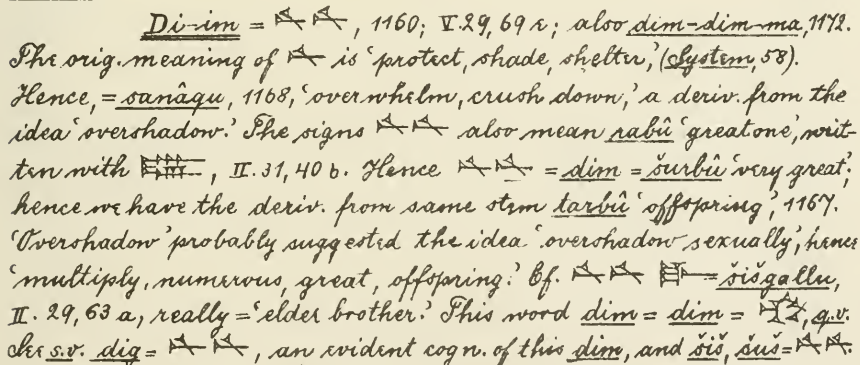 Di-im = , 1160; V. 29, 69 e; also dim-dim-ma, 1172.
The orig. meaning of is ‘protect, shade, shelter,’ (System, 58).
Hence, = sanâqu, 1168, ‘overwhelm, crush down,’ a deriv. from the
idea ‘overshadow.’ The signs also mean rabû ‘great one’, writ-
ten with , II. 31, 40 b. Hence = dim = šurbû ‘very great’;
hence we have the deriv. from same stem tarbû ‘offspring’, 1167.
‘Overshadow’ probably suggested the idea ‘overshadow sexually’, hence
‘multiply, numerous, great, offspring.’ Cf. = šišgallu,
II. 29, 63 a, really = ‘elder brother.’ This word dim = dim = , q.v.
See s.v. dig = , an evident cogn. of this dim, and šiš, šuš = .